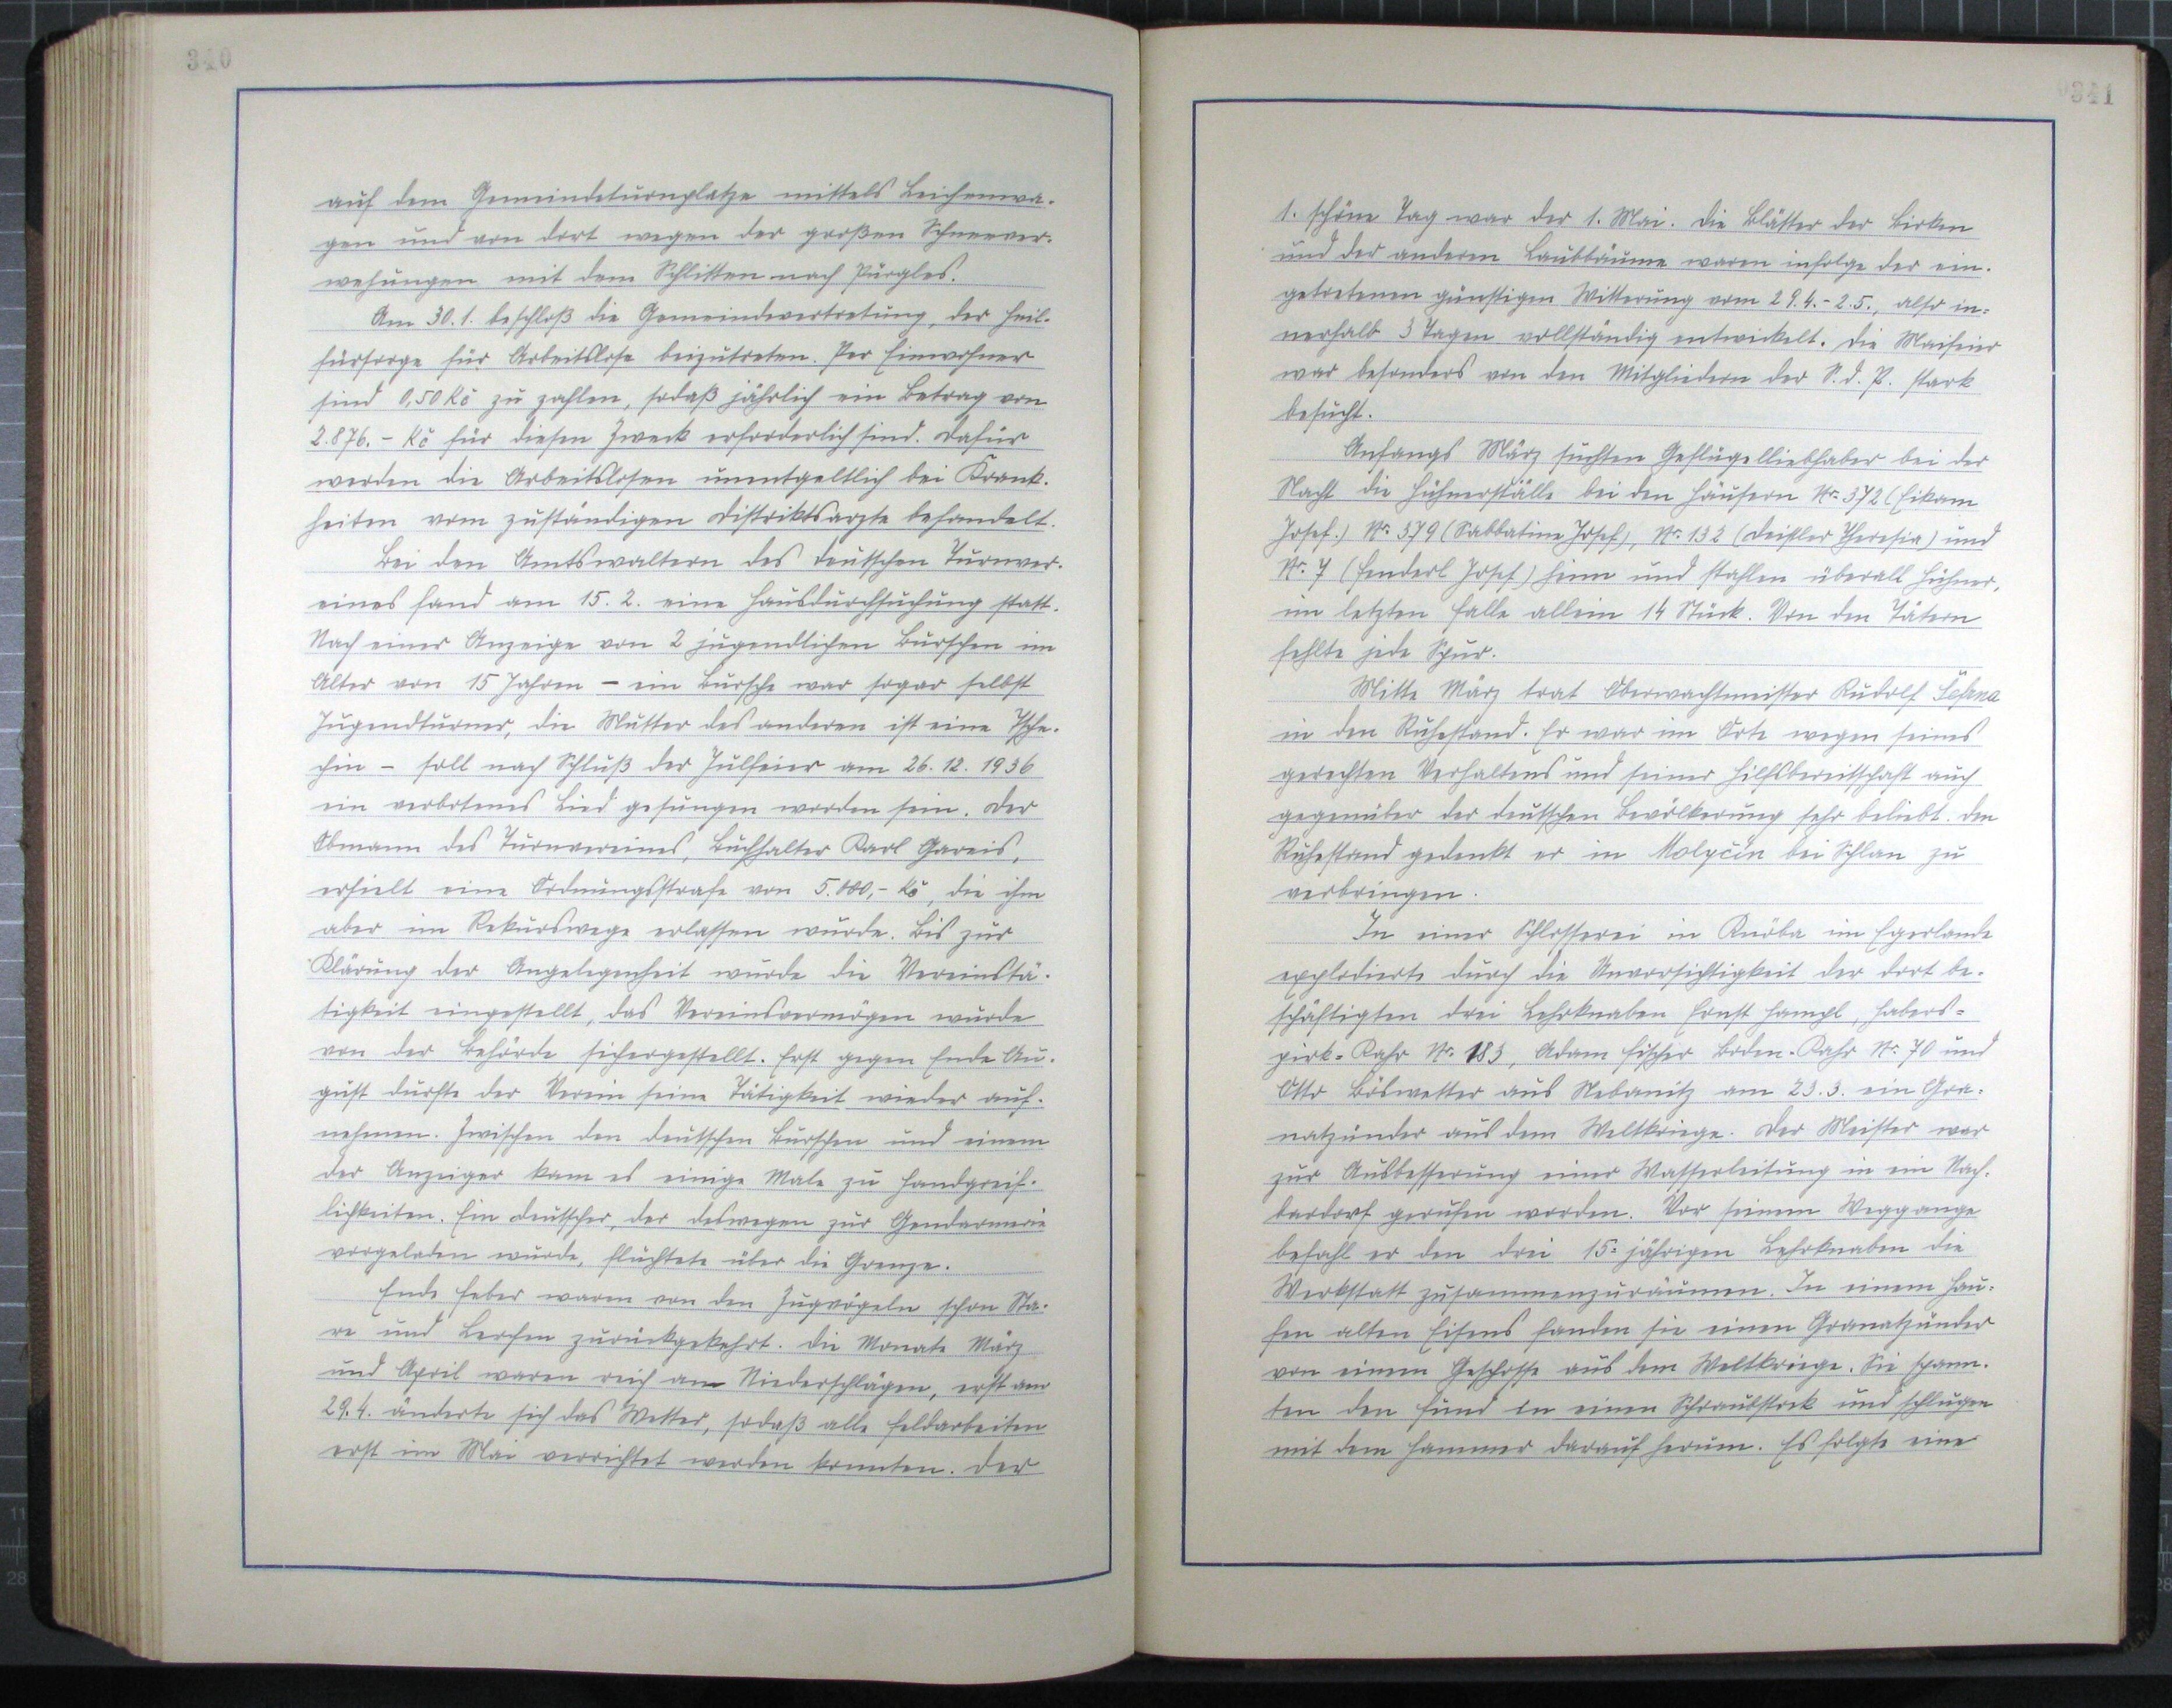 340
auf dem Gemeindeturnplatze mittels Leichenwa-
gen und von dort wegen der großen Schneever-
wehungen mit dem Schlitten nach Pürgles.
Am 30.1. beschloß die Gemeindevertretung, der Heil-
fürsorge für Arbeitslose beizutreten. Per Einwohner
sind 0,50 Kč zu zahlen, sodaß jährlich ein Betrag von
2.876.- Kč für diesen Zweck erforderlich sind. Dafür
werden die Arbeitslosen unentgeltlich bei Krank-
heiten vom zuständigen Distriktsarzte behandelt.
Bei den Amtswaltern des deutschen Turnver-
eines fand am 15.2. eine Hausdurchsuchung statt.
Nach einer Anzeige von 2 jugendlichen Burschen im
Alter von 15 Jahren - ein Bursche war sogar selbst
Jugendturner, die Mutter des anderen ist eine Tsche-
chin - soll nach Schluß der Julfeier am 26.12.1936
ein verbotenes Lied gesungen worden sein. Der
Obmann des Turnvereines, Buchhalter Karl Gareis,
erhielt eine Ordnungsstrafe von 5.000,- Kč, die ihm
aber im Rekurswege erlassen wurde. Bis zur
Klärung der Angelegenheit wurde die Vereinstä-
tigkeit eingestellt, das Vereinsvermögen wurde
von der Behörde sichergestellt. Erst gegen Ende Au-
gust durfte der Verein seine Tätigkeit wieder auf-
nehmen. Zwischen den deutschen Burschen und einem
der Anzeiger kam es einige Male zu Handgreif-
lichkeiten. Ein Deutscher, der deswegen zur Gendarmerie
vorgeladen wurde, flüchtete über die Grenze.
Ende Feber waren von den Zugvögeln schon Sta-
re und Lerchen zurückgekehrt. Die Monate März
und April waren reich an Niederschlägen, erst am
29.4. änderte sich das Wetter, sodaß alle Feldarbeiten
erst im Mai verrichtet werden konnten. Der
341
1. schöne Tag war der 1. Mai. Die Blätter der Birken
und der anderen Laubbäume waren infolge der ein-
getretenen günstigen Witterung vom 29.4.-2.5., also in-
nerhalb 3 Tagen vollständig entwickelt. Die Maifeier
war besonders von den Mitgliedern der S.d.P. stark
besucht.
Anfangs März suchten Geflügelliebhaber bei der
Nacht die Hühnerställe bei den Häusern Nr. 372 (Eikam
Josef.) Nr. 379 (Sabbatine Josef), Nr. 132 (Deistler Theresia) und
Nr. 7 (Henderl Josef) heim und stahlen überall Hühner,
im letzten Falle allein 14 Stück. Von den Tätern
fehlte jede Spur.
Mitte März trat Oberwachtmeister Rudolf
in den Ruhestand. Er war im Orte wegen seines
gerechten Verhaltens und seiner Hilfsbereitschaft auch
gegenüber der deutschen Bevölkerung sehr beliebt. Den
Ruhestand gedenkt er in Molyčín bei Schlan zu
verbringen.
In einer Schlosserei in Knöba im Egerlande
explodierte durch die Unvorsichtigkeit der dort be-
schäftigten drei Lehrknaben Ernst Hampl, Habers-
pirk-Kahr Nr. 183, Adam Fischer Boden-Kahr Nr. 70 und
Otto Böswetter aus Nebanitz am 23.3. ein Gra-
natzünder aus dem Weltkriege. Der Meister war
zur Ausbesserung einer Wasserleitung in ein Nach-
bardorf gerufen worden. Vor seinem Weggange
befahl er den drei 15-jährigen Lehrknaben die
Werkstatt zusammenzuräumen. In einem Hau-
fen alten Eisens fanden sie einen Granatzünder
von einem Geschosse aus dem Weltkriege. Sie spann-
ten den Fund in einen Schraubstock und schlugen
mit dem Hammer darauf herum. Es folgte eine